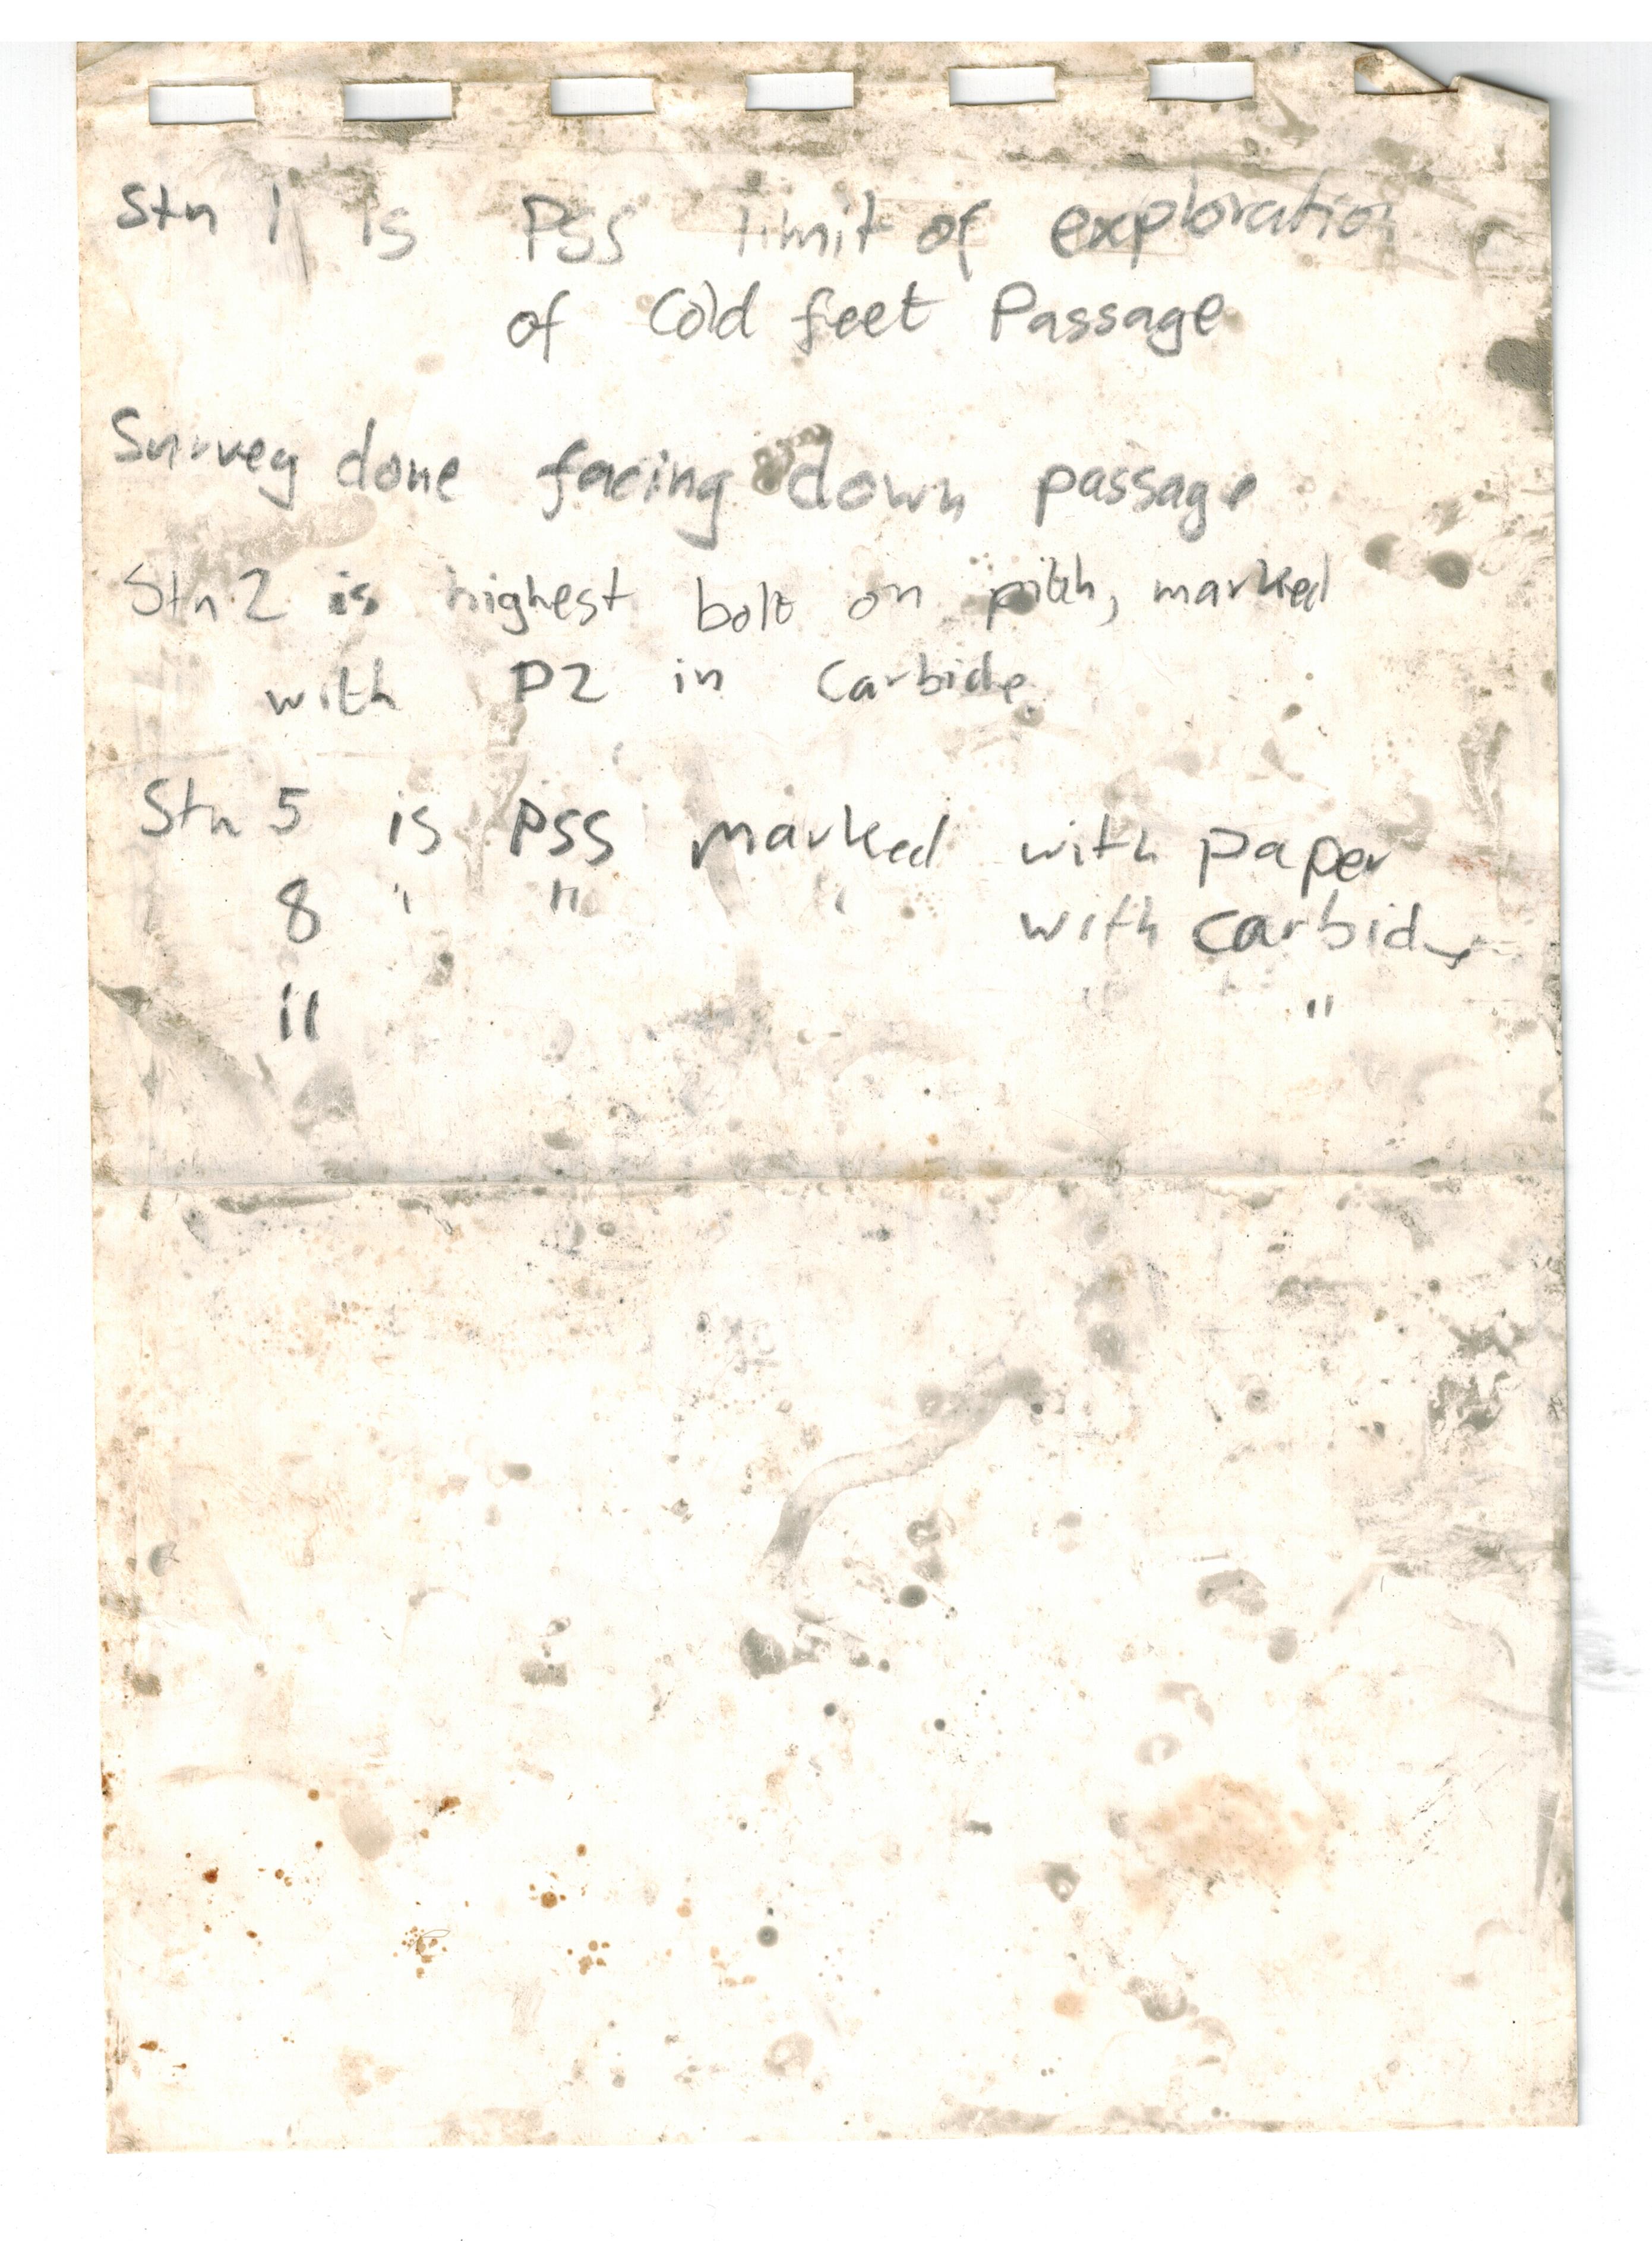 Stn 1 is PSS limit of exploration
of Cold feet Passage
Survey done facing down passage
Stn 2 is highest bolt on pitch, marked
with P2 in Carbide
Stn 5 is PSS marked with paper
8 " " " with carbide
11 "